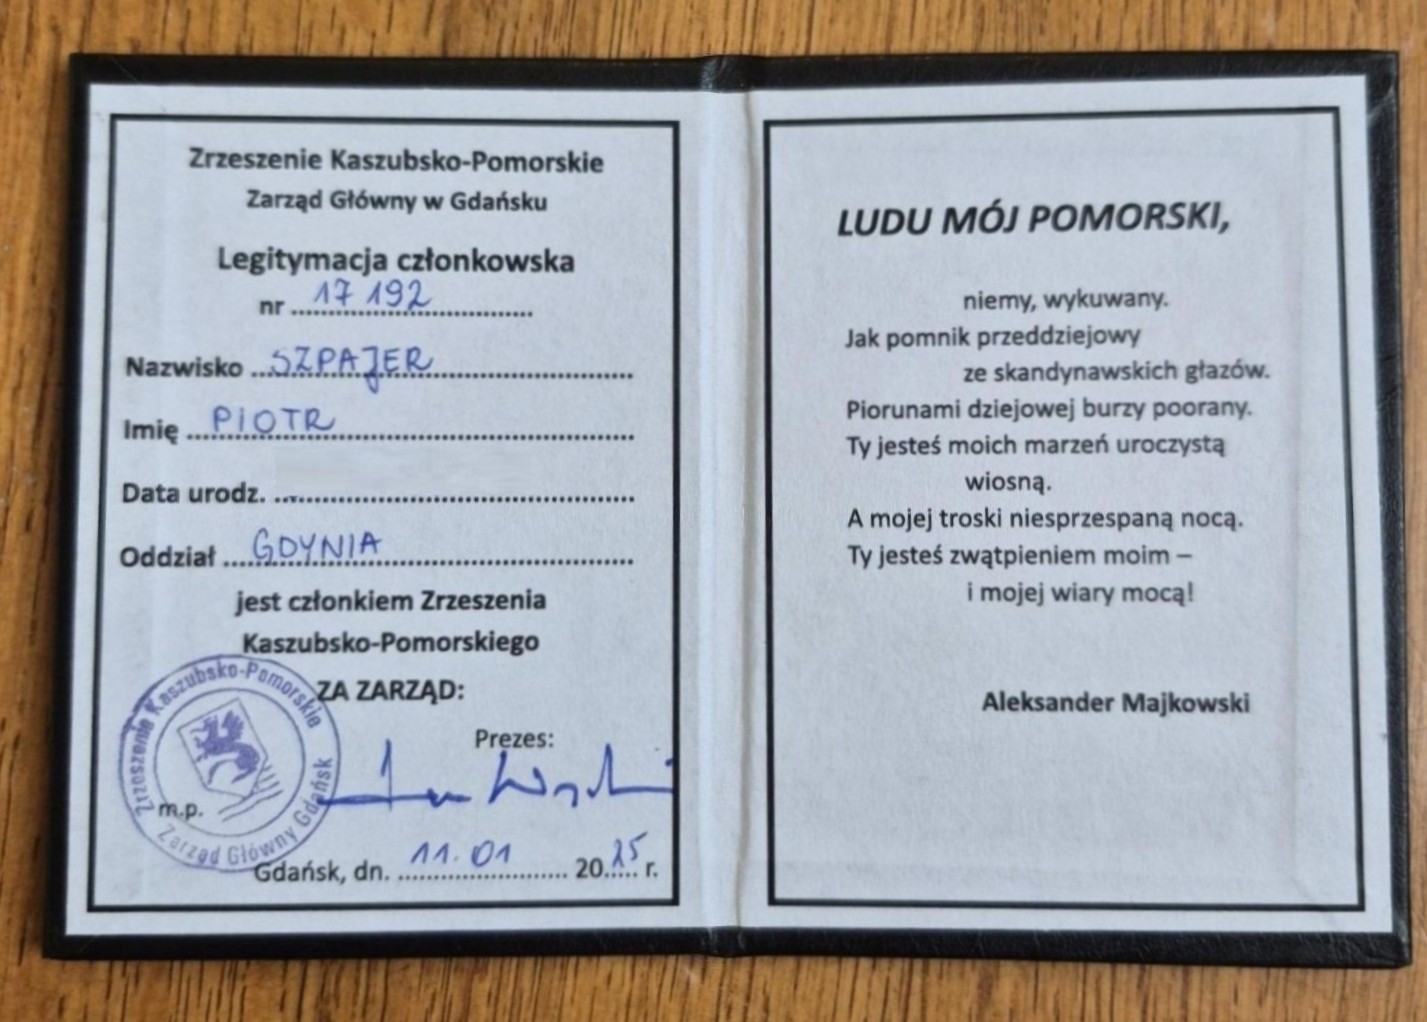 Zrzeszenie Kaszubsko-Pomorskie
Zarząd Główny w Gdańsku
Legitymacja członkowska
nr 17 192
Nazwisko SZPAJER
Imię PIOTR
Data urodz.
Oddział GDYNIA
jest członkiem Zrzeszenia
Kaszubsko-Pomorskiego
ZA ZARZĄD:
Prezes:
Zrzeszenie Kaszubsko-Pomorskie
Zarząd Główny Gdańsk
m.p.
Gdańsk, dn. 11.01 2025 r.
LUDU MÓJ POMORSKI,
niemy, wykuwany.
Jak pomnik przeddziejowy
ze skandynawskich głazów.
Piorunami dziejowej burzy poorany.
Ty jesteś moich marzeń uroczystą
wiosną.
A mojej troski niesprzespaną nocą.
Ty jesteś zwątpieniem moim –
i mojej wiary mocą!
Aleksander Majkowski